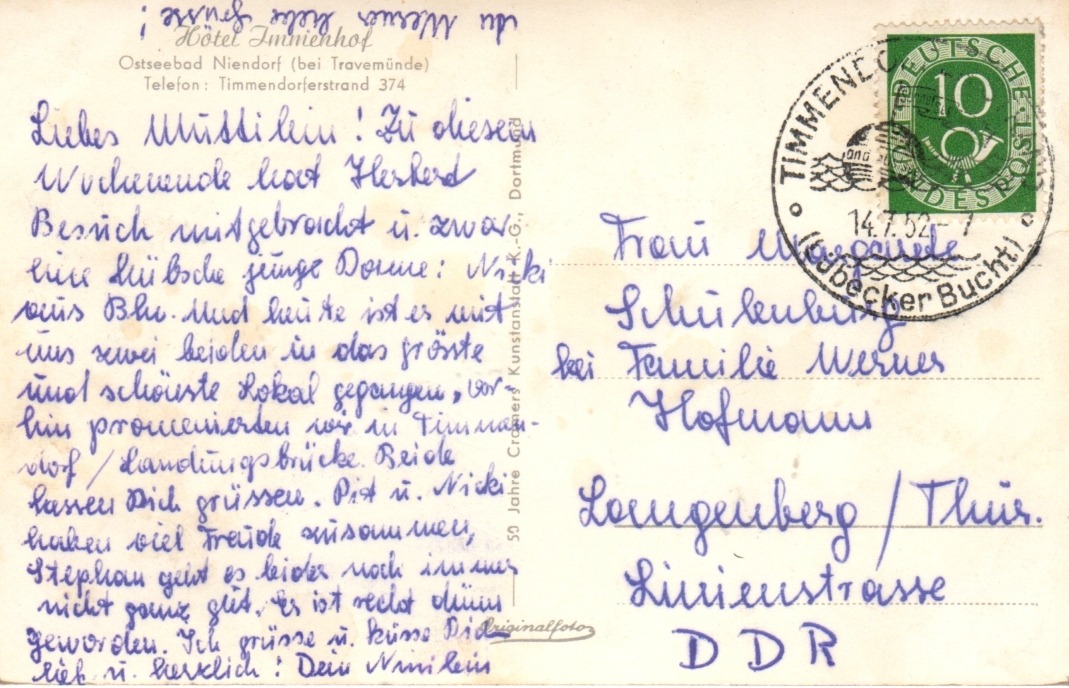 Hotel Immenhof
Ostseebad Niendorf (bei Travemünde)
Telefon: Timmendorferstrand 374
Liebes Muttilein! Zu diesem
Wochenende hat Herbert
Besuch mitgebracht u. zwar
eine hübsche junge Dame: Nicki
aus Bln. Und heute ist es mit
uns zwei beiden in das grösste
und schönste Lokal gegangen, vor-
hin promenierten wir in Timmen-
dorf / Landungsbrücke. Beide
lassen Dich grüssen. Pit u. Nicki
haben viel Freude zusammen,
Stephan geht es leider noch immer
nicht ganz gut. Er ist recht dünn
geworden. Ich grüsse u. küsse Dich
lieb u. herzlich! Dein Ninilein
An Werner liebe Grüsse!
50 Jahre Cramers Kunstanstalt K.-G., Dortmund
Originalfoto
DEUTSCHE BUNDESPOST
10
TIMMENDO
14.7.52-7
(Lübecker Bucht)
Frau Margarete
Schulenburg
bei Familie Werner
Hofmann
Langenberg / Thür.
Linienstrasse
DDR